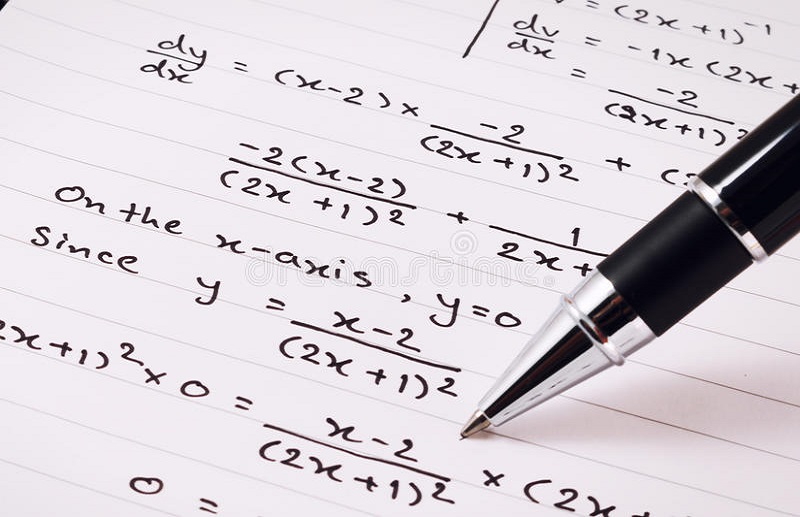 = (2x+1)^-1
dv/dx = -1x(2x+
= -2/(2x+1)^2
dy/dx = (x-2) x -2/(2x+1)^2 + (2
-2(x-2)/(2x+1)^2 + 1/2x+
On the x-axis, y=0
since y = x-2/(2x+1)^2
2x+1)^2 x 0 = x-2/(2x+1)^2 x (2x
0 =
dreamstime